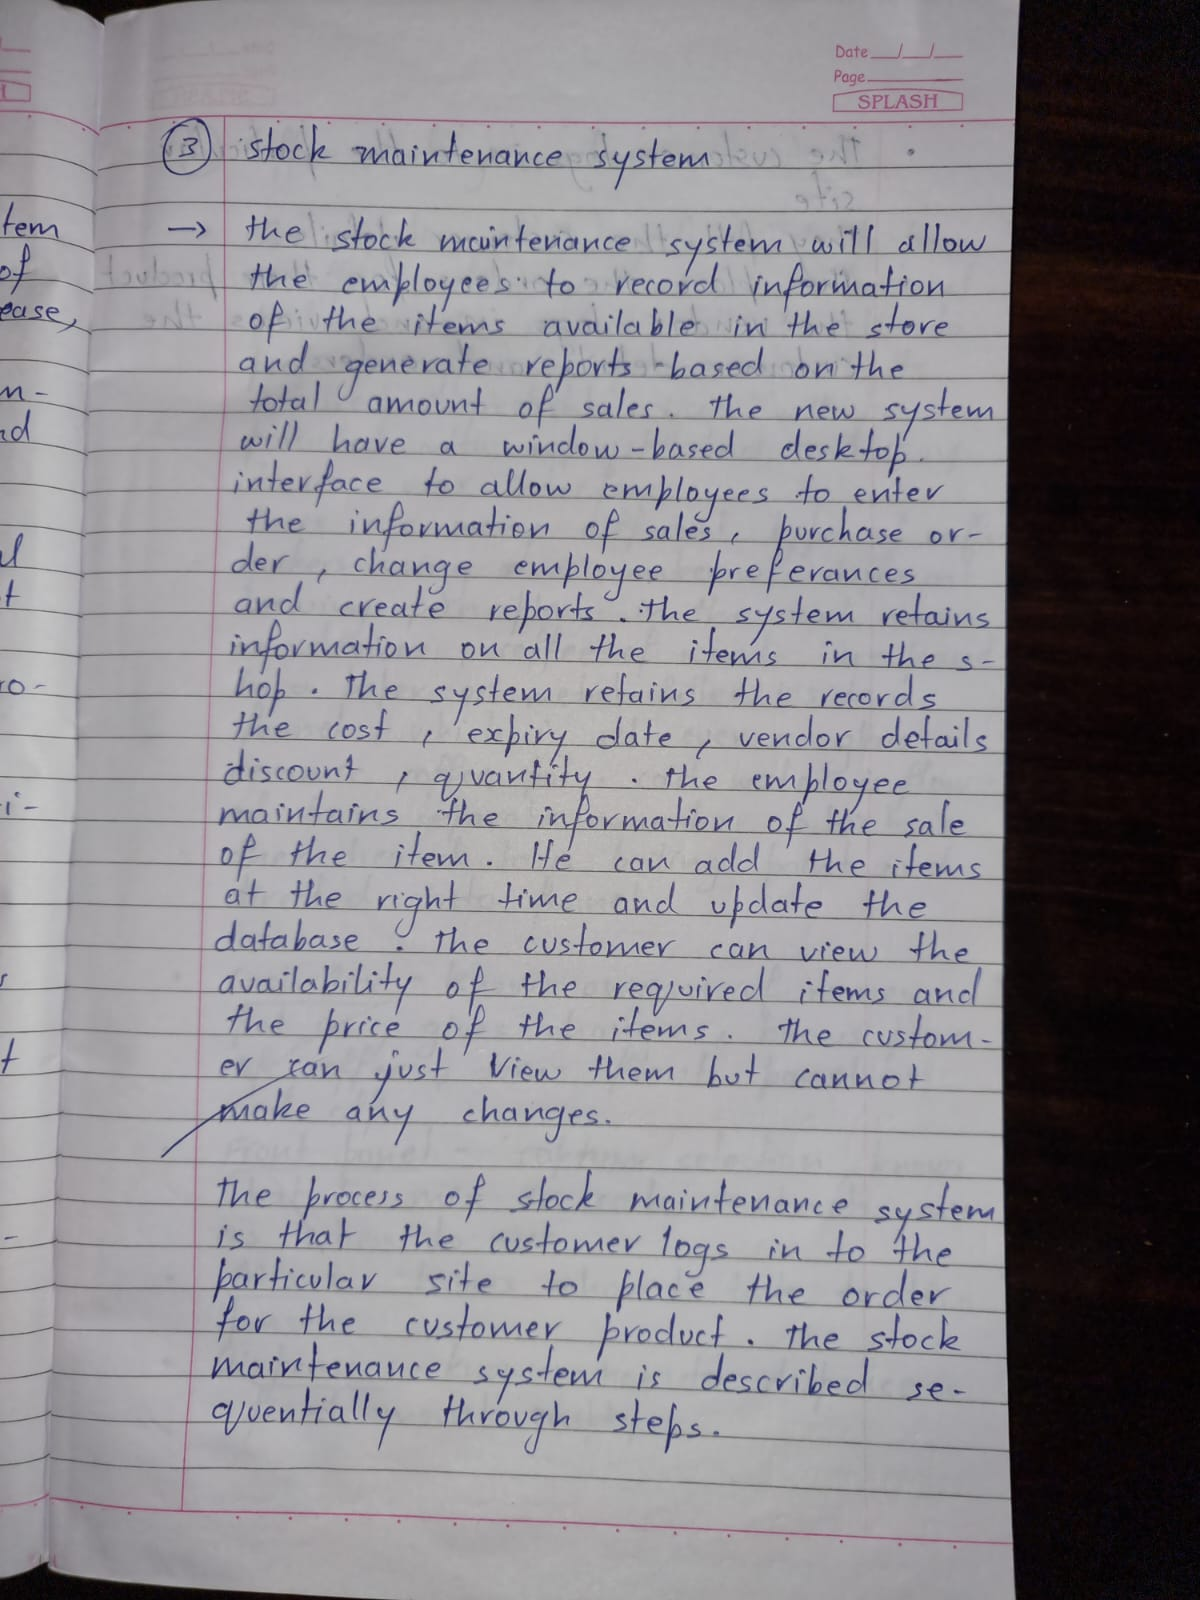 Date __/__/__
Page
SPLASH
3 stock maintenance system
→ the stock maintenance system will allow
the employees to record information
of the items available in the store
and generate reports based on the
total amount of sales. The new system
will have a window-based desktop.
interface to allow employees to enter
the information of sales, purchase or-
der, change employee preferances
and create reports. The system retains
information on all the items in the s-
hop. The system retains the records
the cost, expiry date, vendor details
discount, quantity. the employee
maintains the information of the sale
of the item. He can add the items
at the right time and update the
database. The customer can view the
availability of the required items and
the price of the items. The custom-
er can just view them but cannot
make any changes.
The process of stock maintenance system
is that the customer logs in to the
particular site to place the order
for the customer product. The stock
maintenance system is described se-
quentially through steps.
tem
of
ease,